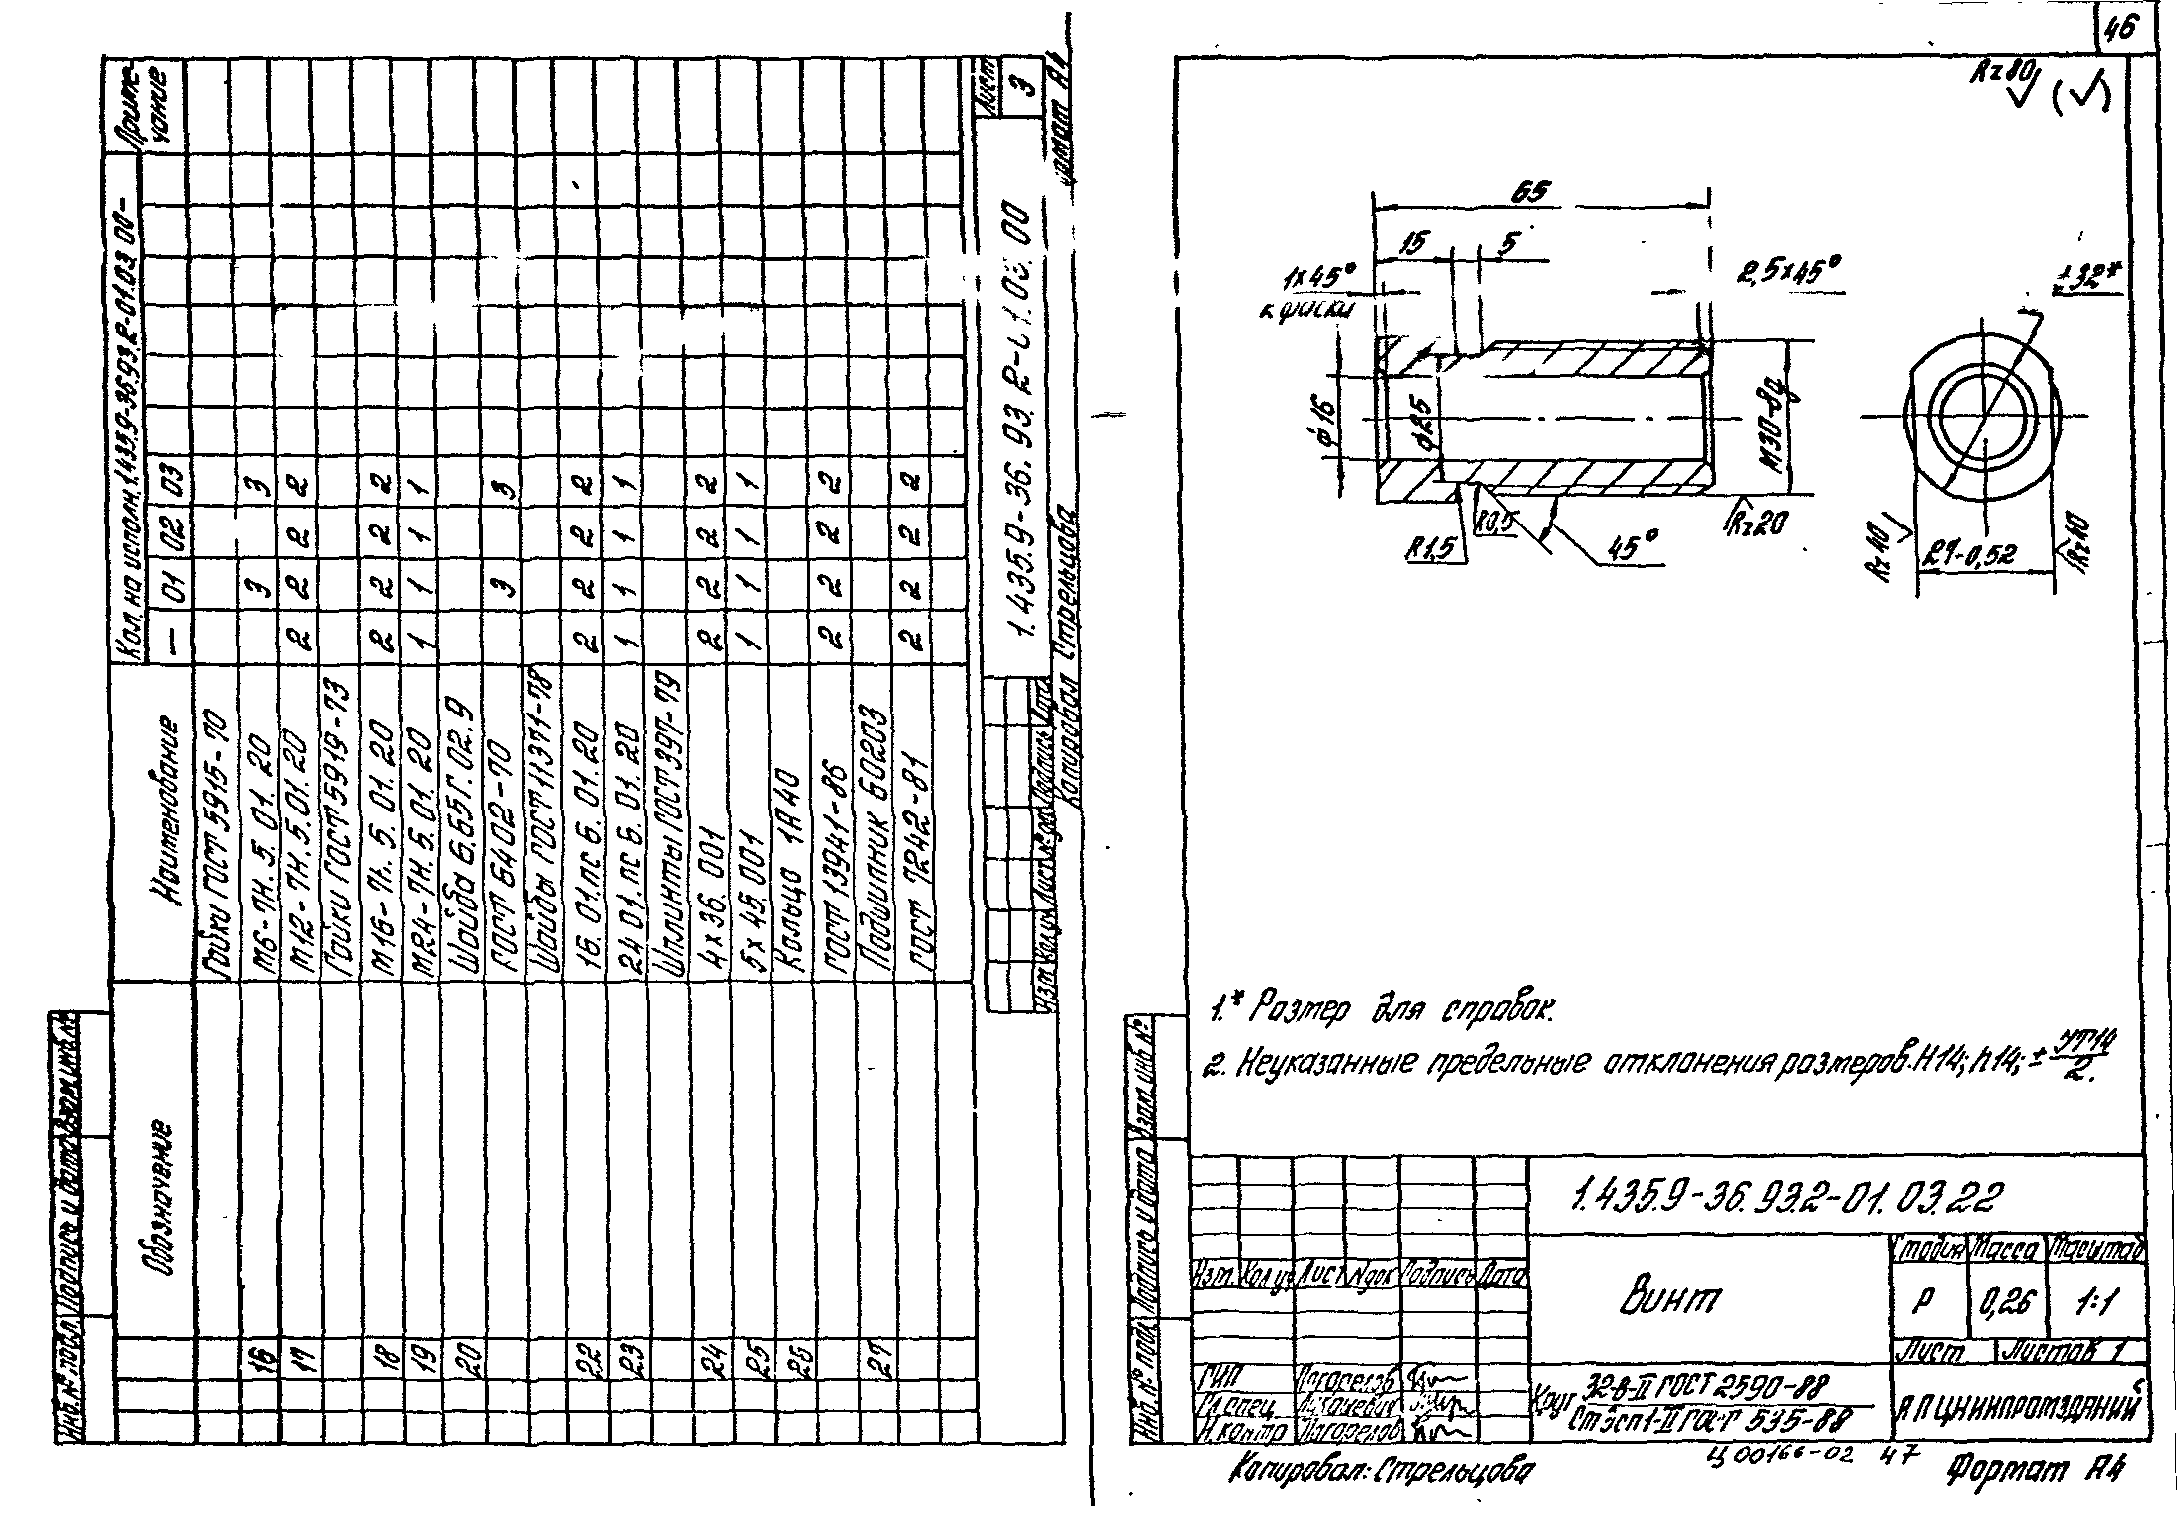 Обозначение
Наименование
Кол. на исполн. 1.435.9-36.93.2-01.03 00-
Приме-
чание
— 01 02 03
Гайки ГОСТ 5915-70
16 М6-7Н.5.01.20 3 3
17 М12-7Н.5.01.20 2 2 2 2
Гайки ГОСТ 5919-73
18 М16-7Н.5.01.20 2 2 2 2
19 М24-7Н.5.01.20 1 1 1 1
20 Шайба 6.65Г.02.9
ГОСТ 6402-70 3 3
Шайбы ГОСТ 11371-78
22 16.01.пс 6.01.20 2 2 2 2
23 24 01.пс 6.01.20 1 1 1 1
Шплинты ГОСТ 397-79
24 4х36.001 2 2 2 2
25 5х45.001 1 1 1 1
26 Кольцо 1А40
ГОСТ 13941-86 2 2 2 2
27 Подшипник 60203
ГОСТ 7242-81 2 2 2 2
Изм Кол.уч Лист №док Подпись Дата
1.435.9-36.93.2-01.03.00
Лист
3
Копировал Стрельцова
Формат А4
Инв.№ подл. Подпись и дата Взам.инв.№
46
Rz80 (√)
65
15 5
1х45°
2 фаски
2,5х45°
⌀32*
⌀16
⌀25
М30-8g
R1,5
R0,5
45°
Rz20
Rz40
27-0,52
Rz40
1.* Размер для справок.
2. Неуказанные предельные отклонения размеров: Н14; h14; ± УТ14/2.
Взам.инв.№
Подпись и дата
Инв.№ подл
1.435.9-36.93.2-01.03.22
Изм. Кол.уч Лист №док Подпись Дата
Винт
Стадия Масса Масштаб
Р 0,26 1:1
Лист Листов 1
ГИП Погорелов
Гл.спец
Н.контр Погорелов
Круг 32-В-II ГОСТ 2590-88
Ст3сп1-II ГОСТ 535-88
АП ЦНИИПРОМЗДАНИЙ
Ц00166-02 47
Копировал: Стрельцова
Формат А4